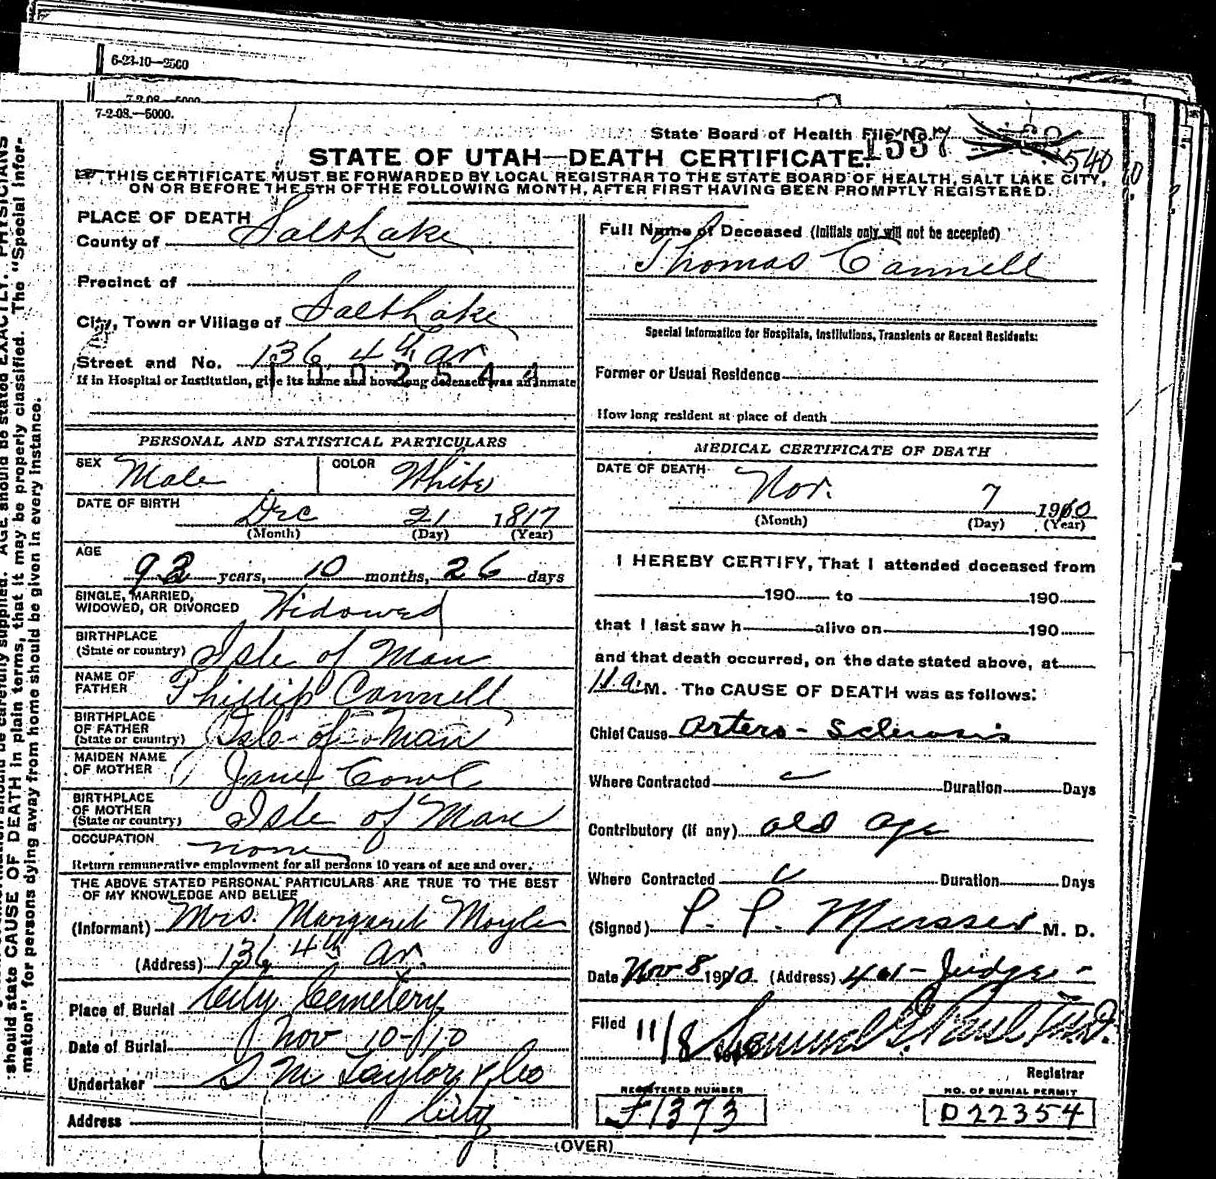 6-23-10—2500
7-2-08.—5000.
7-2-08.—5000.
State Board of Health File No. 1537
540
STATE OF UTAH—DEATH CERTIFICATE.
THIS CERTIFICATE MUST BE FORWARDED BY LOCAL REGISTRAR TO THE STATE BOARD OF HEALTH, SALT LAKE CITY,
ON OR BEFORE THE 5TH OF THE FOLLOWING MONTH, AFTER FIRST HAVING BEEN PROMPTLY REGISTERED.
PLACE OF DEATH
County of Salt Lake
Precinct of
City, Town or Village of Salt Lake
Street and No. 136 4th av
1002544
If in Hospital or Institution, give its name and how long deceased was an inmate
PERSONAL AND STATISTICAL PARTICULARS
SEX Male COLOR White
DATE OF BIRTH Dec 21 1817
(Month) (Day) (Year)
AGE
92 years, 10 months, 26 days
SINGLE, MARRIED,
WIDOWED, OR DIVORCED Widowed
BIRTHPLACE
(State or country) Isle of Man
NAME OF
FATHER Phillip Cannell
BIRTHPLACE
OF FATHER
(State or country) Isle of Man
MAIDEN NAME
OF MOTHER Jane Cowl
BIRTHPLACE
OF MOTHER
(State or country) Isle of Man
OCCUPATION none
Return remunerative employment for all persons 10 years of age and over.
THE ABOVE STATED PERSONAL PARTICULARS ARE TRUE TO THE BEST
OF MY KNOWLEDGE AND BELIEF
(Informant) Mrs. Margaret Moyle
(Address) 136 4th av.
Place of Burial City Cemetery
Date of Burial Nov 10-10
Undertaker S M Taylor & Co
Address City
Full Name of Deceased (Initials only will not be accepted)
Thomas Cannell
Special Information for Hospitals, Institutions, Transients or Recent Residents:
Former or Usual Residence
How long resident at place of death
MEDICAL CERTIFICATE OF DEATH
DATE OF DEATH
Nov. 7 1910
(Month) (Day) (Year)
I HEREBY CERTIFY, That I attended deceased from
190 to 190
that I last saw h alive on 190
and that death occurred, on the date stated above, at
11 a. M. The CAUSE OF DEATH was as follows:
Chief Cause Artero-Sclerosis
Where Contracted Duration Days
Contributory (if any) old age
Where Contracted Duration Days
(Signed) M. D.
Date Nov 8 1910. (Address) 401-Judge-
Filed 11/8 Samuel G. Paul M.D.
Registrar
REGISTERED NUMBER
F1373
NO. OF BURIAL PERMIT
D22354
(OVER)
AGE should be stated EXACTLY. PHYSICIANS
should state CAUSE OF DEATH in plain terms, that it may be properly classified. The "Special Infor-
mation" for persons dying away from home should be given in every instance.